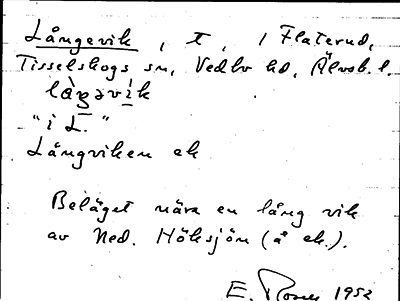 Långevik, t, / Flaterud,
Tisselskogs sn, Vedbo hd, Älvsb. l.
lå̀ŋəvìk
"i L."
Långviken ek
Beläget nära en lång vik
av Ned. Höksjön (å ek.).
E. Rosén 1952